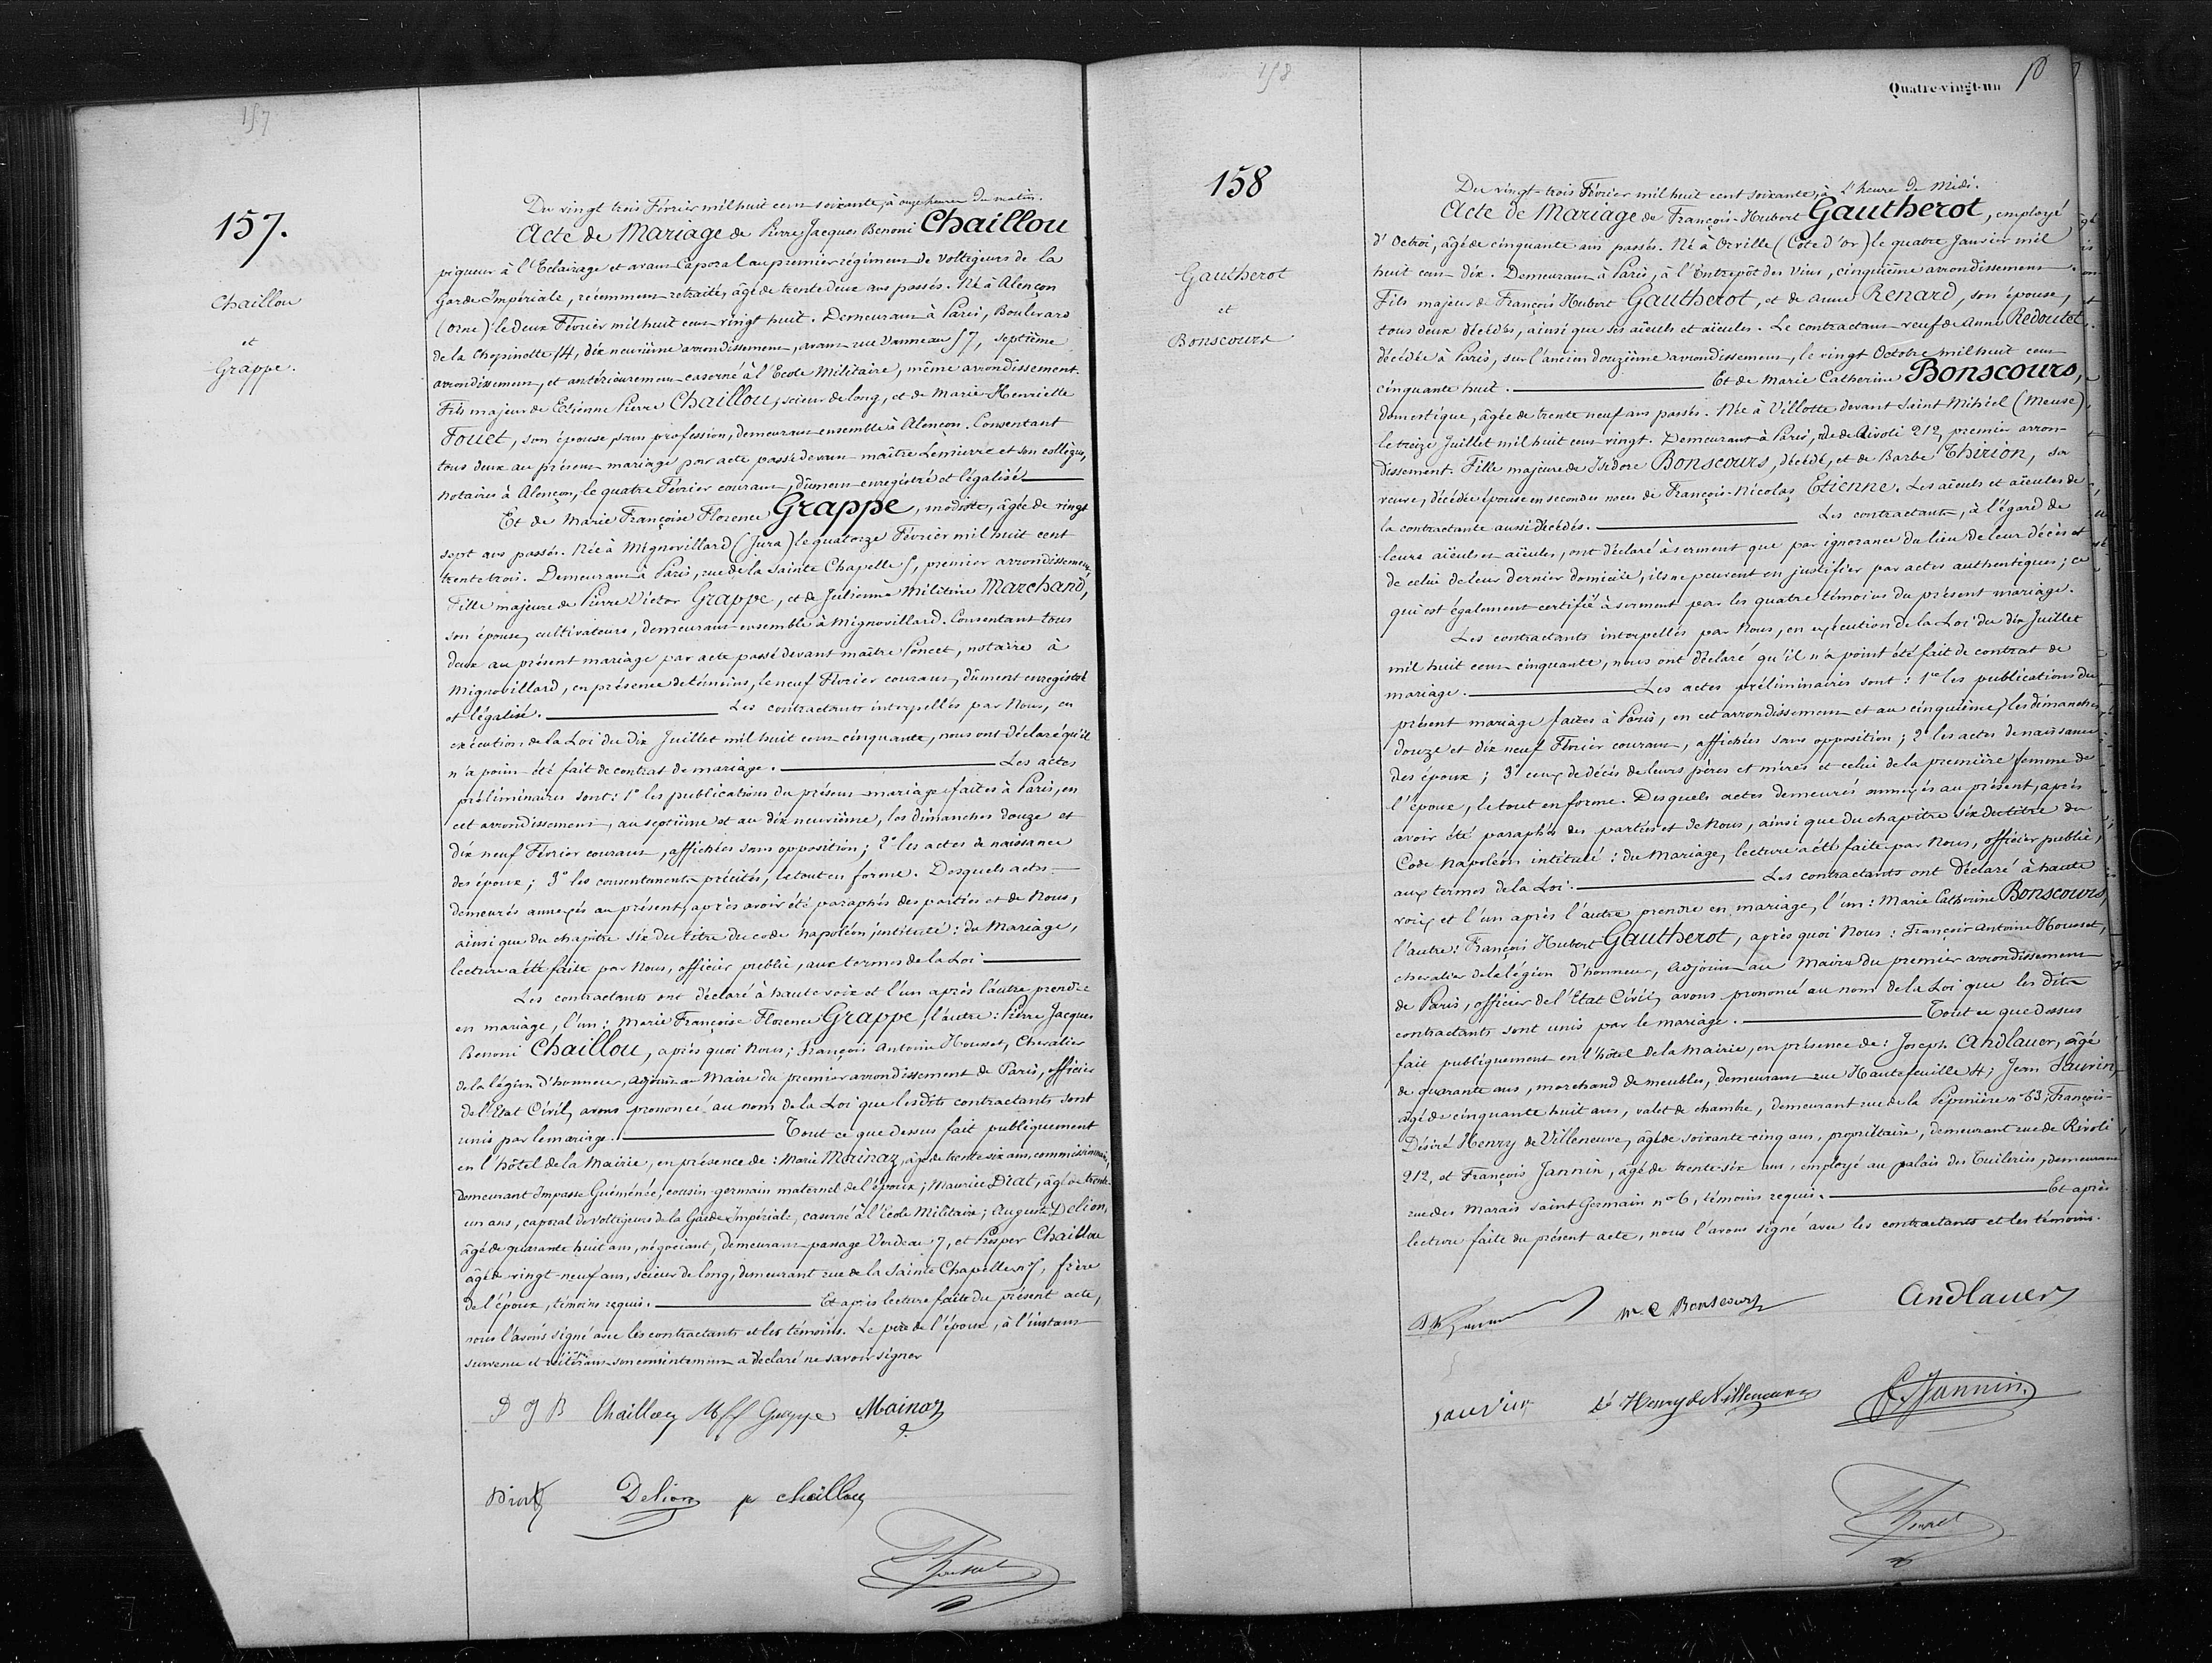 157
157.
Chaillou
et
Grappe.
Du vingt trois Février mil huit cent soixante, à onze heures du matin.
Acte de Mariage de Pierre Jacques Benoni Chaillou
piqueur à l'Eclairage et avant Caporal au premier régiment de Voltigeurs de la
Garde Impériale, récemment retraité, âgé de trente deux ans passés. Né à Alençon
(Orne) le deux Février mil huit cent vingt huit. Demeurant à Paris, Boulevard
de la Chopinette 14, dix neuvième arrondissement, avant rue Vanneau 57, septième
arrondissement, et antérieurement caserné à l'Ecole Militaire, même arrondissement.
Fils majeur de Etienne Pierre Chaillou, scieur de long, et de Marie Henriette
Fouet, son épouse, sans profession, demeurant ensemble à Alençon. Consentant
tous deux au présent mariage par acte passé devant maître Lemierre et son collègue,
notaires à Alençon, le quatre Février courant, dûment enregistré et légalisé
Et de Marie Françoise Florence Grappe, modiste, âgée de vingt
sept ans passés. Née à Mignovillard (Jura) le quatorze Février mil huit cent
trente trois. Demeurant à Paris, rue de la Sainte Chapelle 5, premier arrondissement,
Fille majeure de Pierre Victor Grappe, et de Julienne Militine Marchand,
son épouse, cultivateurs, demeurant ensemble à Mignovillard. Consentant tous
deux au présent mariage par acte passé devant maître Poncet, notaire à
Mignovillard, en présence de témoins, le neuf Février courant, dûment enregistré
et légalisé. Les contractants interpellés par Nous, en
exécution de la Loi du Dix Juillet mil huit cent cinquante, nous ont déclaré qu'il
n'a point été fait de contrat de mariage. Les actes
préliminaires sont: 1° les publications du présent mariage faites à Paris, en
cet arrondissement, au septième et au dix neuvième, les dimanches douze et
dix neuf Février courant, affichées sans opposition; 2° les actes de naissance
des époux; 3° les consentements précités, le tout en forme. Desquels actes
demeurés annexés au présent, après avoir été paraphés des parties et de Nous,
ainsi que du chapitre six du titre du code Napoléon, intitulé: du Mariage,
lecture a été faite par Nous, officier public, aux termes de la Loi.
Les contractants ont déclaré à haute voix et l'un après l'autre prendre
en mariage, l'un: Marie Françoise Florence Grappe, l'autre: Pierre Jacques
Benoni Chaillou, après quoi Nous; François Antoine Housset, Chevalier
de la légion d'honneur, adjoint au Maire du premier arrondissement de Paris, officier
de l'Etat Civil, avons prononcé au nom de la Loi que lesdits contractants sont
unis par le mariage. Tout ce que dessus fait publiquement
en l'hôtel de la Mairie, en présence de: Marie Mainaz, âgé de trente six ans, commissionnaire,
demeurant Impasse Guéménée, cousin germain maternel de l'époux; Maurice Diat, âgé de trente
un ans, caporal de Voltigeurs de la Garde Impériale, caserné à l'Ecole Militaire; Auguste Delion,
âgé de quarante huit ans, négociant, demeurant passage Verdeau 7, et Prosper Chaillou
âgé de vingt neuf ans, scieur de long, demeurant rue de la Sainte Chapelle n° 5, frère
de l'époux, témoins requis. Et après lecture faite du présent acte,
nous l'avons signé avec les contractants et les témoins. Le père de l'époux, à l'instant
survenu et réitérant son consentement a déclaré ne savoir signer
P J B Chaillou Mff Grappe Mainaz
Diat Delion p chaillou
Housset
158
Quatre-vingt-un
158
Gautherot
et
Bonscours
Du vingt-trois Février mil huit cent soixante, à l'heure de Midi.
Acte de Mariage de François-Hubert Gautherot, employé
d'Octroi, âgé de cinquante ans passés. Né à Orville (Côte d'Or) le quatre Janvier mil
huit cent dix. Demeurant à Paris, à l'Entrepôt des Vins, cinquième arrondissement.
Fils majeur de François Hubert Gautherot, et de Anne Renard, son épouse,
tous deux décédés, ainsi que ses aïeuls et aïeules. Le contractant veuf de Anne Redoutet,
décédée à Paris, sur l'ancien douzième arrondissement, le vingt Octobre mil huit cent
cinquante huit. Et de Marie Catherine Bonscours,
domestique, âgée de trente neuf ans passés. Née à Villotte devant Saint Mihiel (Meuse)
le treize Juillet mil huit cent vingt. Demeurant à Paris, rue de Rivoli 212, premier arron-
dissement. Fille majeure de Isidore Bonscours, décédé, et de Barbe Thirion, sa
veuve, décédée épouse en secondes noces de François-Nicolas Etienne. Les aïeuls et aïeules de
la contractante aussi décédés. Les contractants, à l'égard de
leurs aïeuls et aïeules, ont déclaré à serment que par ignorance du lieu de leur décès et
de celui de leur dernier domicile, ils ne peuvent en justifier par actes authentiques; ce
qui est également certifié à serment par les quatre témoins du présent mariage.
Les contractants interpellés par Nous, en exécution de la Loi du dix Juillet
mil huit cent cinquante, nous ont déclaré qu'il n'a point été fait de contrat de
mariage. Les actes préliminaires sont: 1° les publications du
présent mariage faites à Paris, en cet arrondissement et au cinquième, les dimanches
douze et dix neuf Février courant, affichées sans opposition; 2° les actes de naissance
des époux; 3° ceux de décès de leurs pères et mères et celui de la première femme de
l'époux, le tout en forme. Desquels actes demeurés annexés au présent, après
avoir été paraphés des parties et de Nous, ainsi que du chapitre six du titre du
Code Napoléon intitulé: du Mariage, lecture a été faite par Nous, officier public,
aux termes de la Loi. Les contractants ont déclaré à haute
voix et l'un après l'autre prendre en mariage, l'un: Marie Catherine Bonscours,
l'autre: François Hubert Gautherot, après quoi Nous: François Antoine Housset,
chevalier de la légion d'honneur, Adjoint au Maire du premier arrondissement
de Paris, officier de l'Etat Civil, avons prononcé au nom de la Loi que les dits
contractants sont unis par le mariage. Tout ce que dessus
fait publiquement en l'hôtel de la Mairie, en présence de: Joseph Andlauer, âgé
de quarante ans, marchand de meubles, demeurant rue Hautefeuille 4; Jean Sauvin,
âgé de cinquante huit ans, valet de chambre, demeurant rue de la Pépinière n° 63; François-
Désiré Henry de Villeneuve, âgé de soixante cinq ans, propriétaire, demeurant rue de Rivoli
212, et François Jannin, âgé de trente-six ans, employé au palais des Tuileries, demeurant
rue des Marais Saint Germain n° 6, témoins requis. Et après
lecture faite du présent acte, nous l'avons signé avec les contractants et les témoins.
m. C Bonscours Andlauer
Sauvin Dé Henry de Villeneuve F. Jannin
Housset